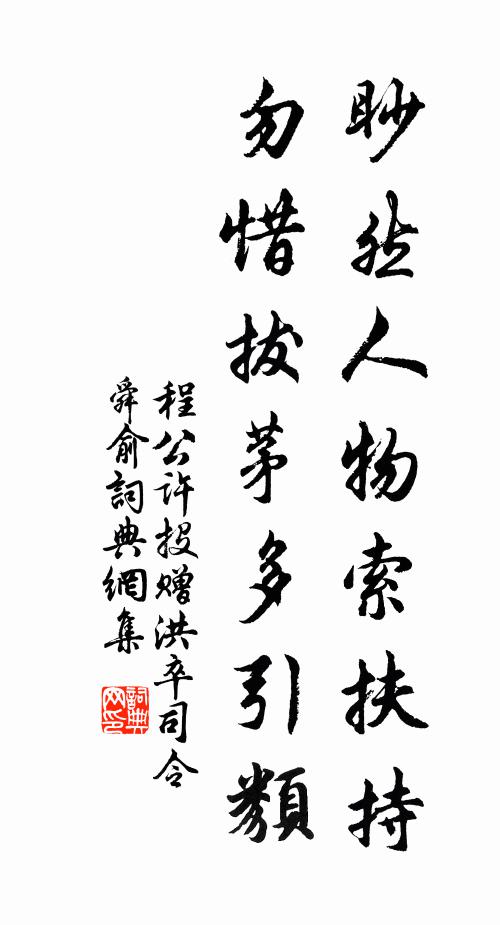 眇然人物索扶持
勿惜拔茅多引類
程公許投贈洪卒司令
舜俞詞典網集
詞典网印